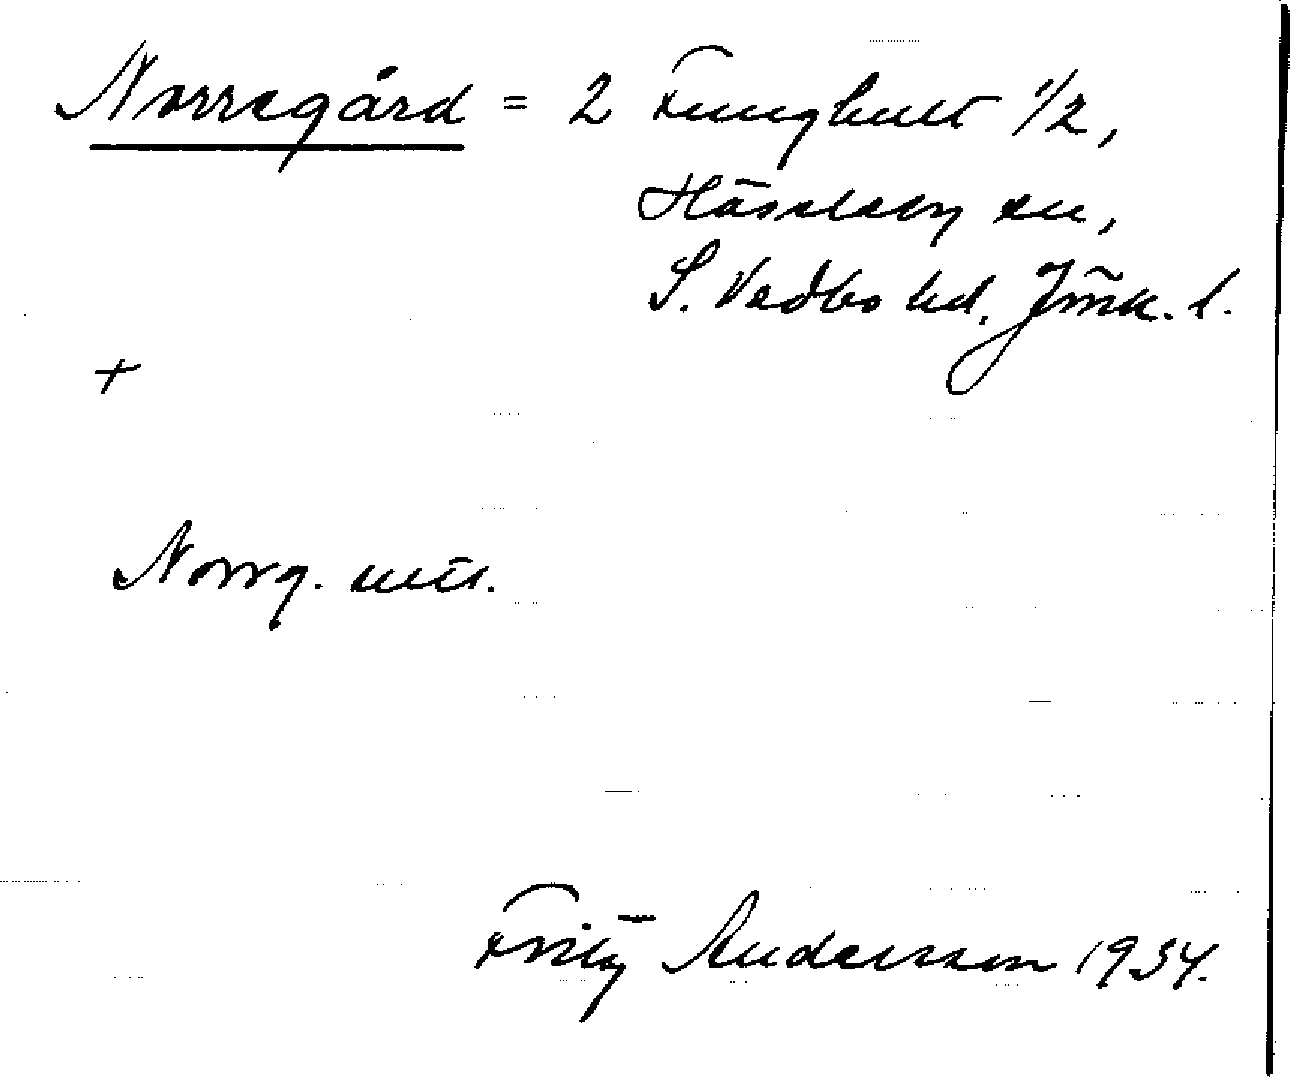 Norregård = 2 Funghult 1/2,
Hässleby sn,
S. Vedbo hd, Jönk. l.
+
Norrg.
Fritz Andersson 1934.